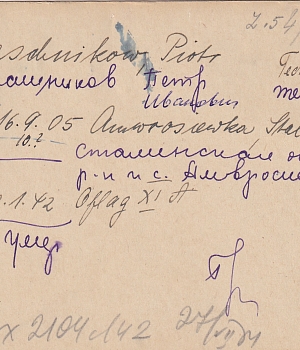 2.54
eschnikow, Piotr
ешников Петр
Иванович
16.9.05 Amwrosiewka, Stal
10.?
сталинская о
р-н и с. Амвросие
.1.42 Oflag XI A
умер
x 2104.142 27/